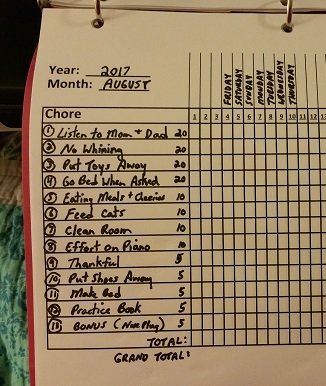 Year: 2017
Month: AUGUST
FRIDAY SATURDAY SUNDAY MONDAY TUESDAY WEDNESDAY THURSDAY
Chore 1 2 3 4 5 6 7 8 9 10 11 12 13
1 Listen to Mom + Dad 20
2 No Whining 20
3 Put Toys Away 20
4 Go Bed When Asked 20
5 Eating Meals + Cheerios 10
6 Feed Cats 10
7 Clean Room 10
8 Effort on Piano 10
9 Thankful 5
10 Put Shoes Away 5
11 Make Bed 5
12 Practice Book 5
13 BONUS (Nose Plug) 5
TOTAL:
GRAND TOTAL: